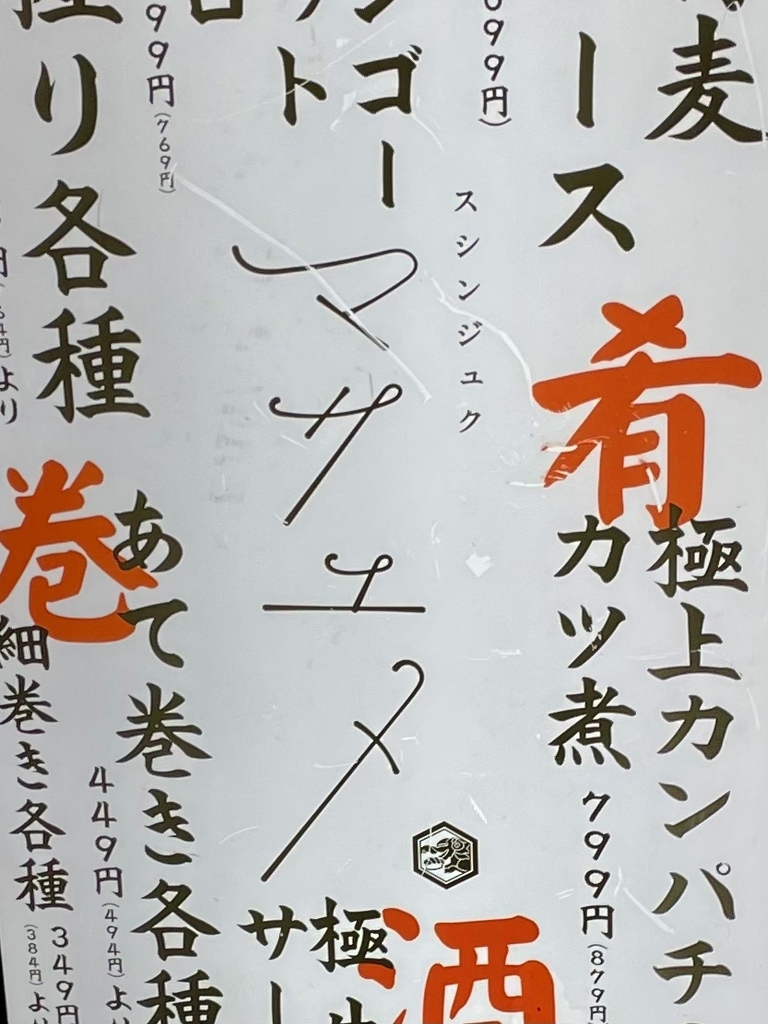 麦
ース
99円)
肴
極上カンパチ
カツ煮
799円(879円
スシンジュク
マサユメ
ンゴー
ト
99円(769円)
り各種
円より
酒
極生
サー
巻
あて巻き各種
449円(494円)より
細巻き各種
349円(384円)より